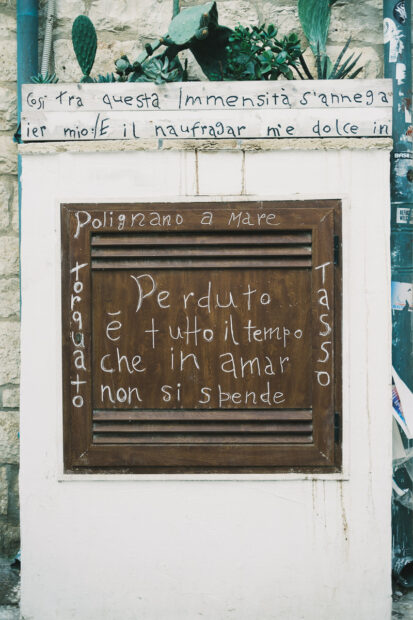 Così tra questa Immensità s'annega
ier mio: E il naufragar m'e dolce in
Polignano a Mare
Torquato
Perduto
è tutto il tempo
che in amar
non si spende
Tasso